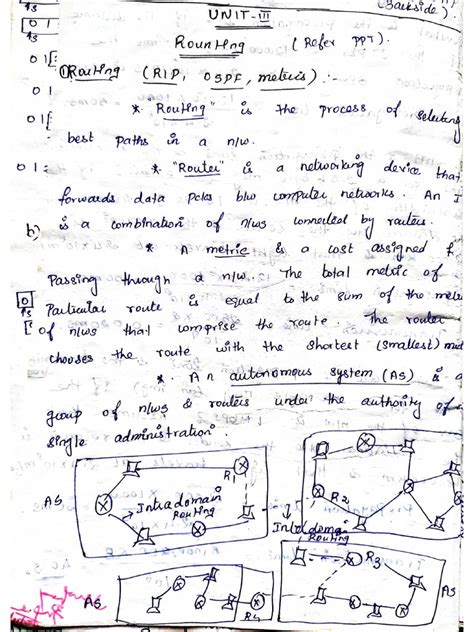 (Backside).
UNIT-III
Rounting (Refer PPT).
① Routing (RIP, OSPF, metrics):-
* "Routing" is the process of selecting
best paths in a n/w.
* "Router" is a networking device that
forwards data pckts b/w computer networks. An I
is a combination of n/ws connected by routers.
b)
* A metric is a cost assigned f
Passing through a n/w. The total metric of
Particular route is equal to the sum of the
of n/ws that comprise the route. The router
chooses the route with the shortest (smallest)
* An autonomous system (AS) is a
group of n/ws & routers under the authority of
single administration.
AS
Intradomain
Routing
R1
R2
Intradomain
Routing
R3
AS
AS
R4